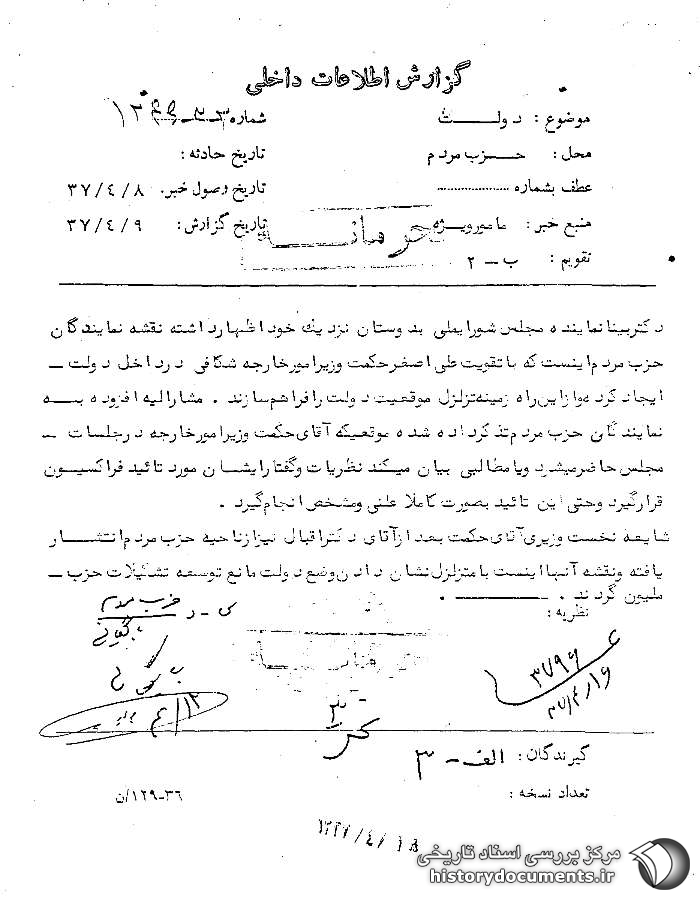 گزارش اطلاعات داخلی
موضوع : دولت
شماره
محل : حزب مردم
تاریخ حادثه :
عطف بشماره
تاریخ وصول خبر. ۳۷/٤/۸
منبع خبر : مامورویژه
تاریخ گزارش : ۳۷/٤/۹
تقویم : ب – ۲
دکتربینا نماینده مجلس شورایملی بدوستان نزدیك خود اظهارداشته نقشه نمایندگان
حزب مردم اینست که با تقویت علی اصغرحکمت وزیرامورخارجه شکافی درداخل دولت –
ایجاد کرده وازاین راه زمینه تزلزل موقعیت دولت را فراهم سازند . مشارالیه افزوده به
نمایندگان حزب مردم تذکرداده شده موقعیکه آقای حکمت وزیرامورخارجه درجلسات –
مجلس حاضرمیشود ویا مطالبی بیان میکند نظریات وگفتارایشان مورد تائید فراکسیون
قرارگیرد وحتی این تائید بصورت کاملا علنی ومشخص انجام گیرد .
شایعه نخست وزیری آقای حکمت بعد ازآقای دکتراقبال نیزازناحیه حزب مردم انتشار
یافته ونقشه آنها اینست با متزلزل نشان دادن وضع دولت مانع توسعه تشکیلات حزب –
ملیون گردند .
نظریه :
حزب مردم
۳۷۹۶
۳۷/۴/۱۶
گیرندگان : الف - ۳
تعداد نسخه :
۳۶–۱۲۹/ن
۱۳۳۷/۴/۱۸
مرکز بررسی اسناد تاریخی
historydocuments.ir